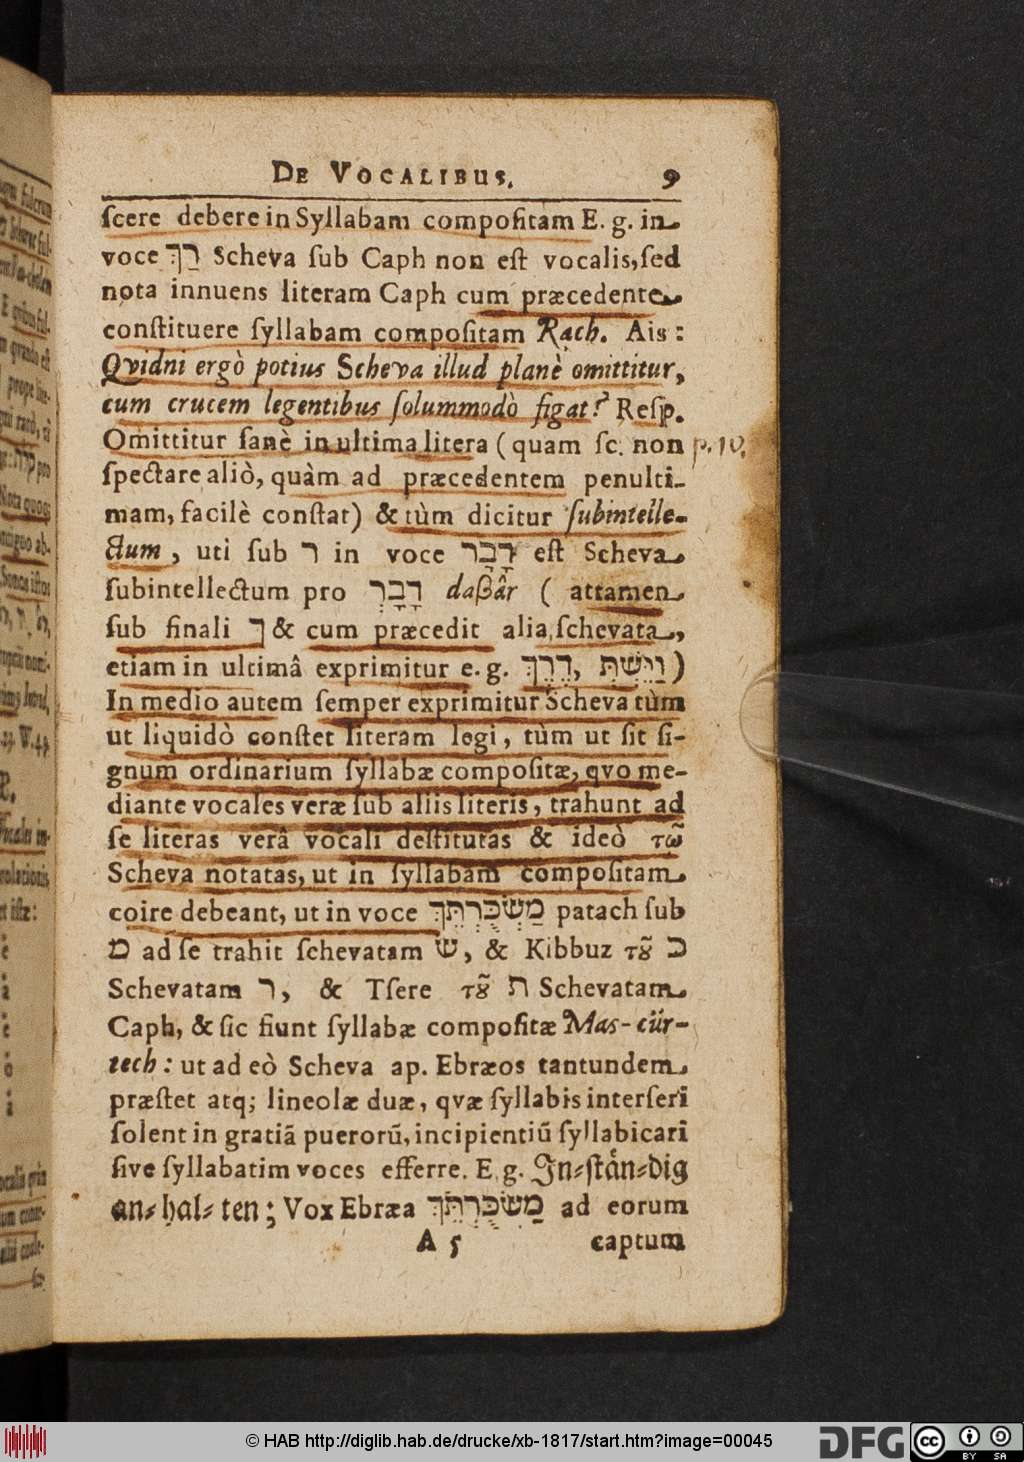 DE VOCALIBUS. 9
ſcere debere in Syllabam compoſitam E. g. in
voce רַךְ Scheva ſub Caph non eſt vocalis, ſed
nota innuens literam Caph cum præcedente
conſtituere ſyllabam compoſitam Rach. Ais:
Qvidni ergò potius Scheva illud planè omittitur,
cum crucem legentibus ſolummodò figat? Reſp.
Omittitur ſanè in ultima litera (quam ſc. non p. 10.
ſpectare aliò, quàm ad præcedentem penulti-
mam, facilè conſtat) & tùm dicitur ſubintelle-
ctum, uti ſub ר in voce דָבָר eſt Scheva
ſubintellectum pro דָבָרְ daßâr ( attamen
ſub finali ך & cum præcedit alia ſchevata,
etiam in ultimâ exprimitur e. g. דֶרֶךְ, וַיֵּשְׁתְּ)
In medio autem ſemper exprimitur Scheva tùm
ut liquidò conſtet literam legi, tùm ut ſit ſi-
gnum ordinarium ſyllabæ compoſitæ, qvo me-
diante vocales veræ ſub aliis literis, trahunt ad
ſe literas verâ vocali deſtitutas & ideò τῶ
Scheva notatas, ut in ſyllabam compoſitam
coire debeant, ut in voce מַשְׂכֻּרְתֵּךְ patach ſub
מ ad ſe trahit ſchevatam שׂ, & Kibbuz τȣ͂ כ
Schevatam ר, & Tſere τȣ͂ ת Schevatam
Caph, & ſic fiunt ſyllabæ compoſitæ Mas-cür-
tech: ut ad eò Scheva ap. Ebræos tantundem
præſtet atq; lineolæ duæ, qvæ ſyllabis interſeri
ſolent in gratiã puerorũ, incipientiũ ſyllabicari
ſive ſyllabatim voces efferre. E. g. In⸗ſtaͤn⸗dig
an⸗hal⸗ten; Vox Ebræa מַשְׂכֻּרְתֵּךְ ad eorum
A 5 captum
© HAB http://diglib.hab.de/drucke/xb-1817/start.htm?image=00045
DFG
cc BY SA